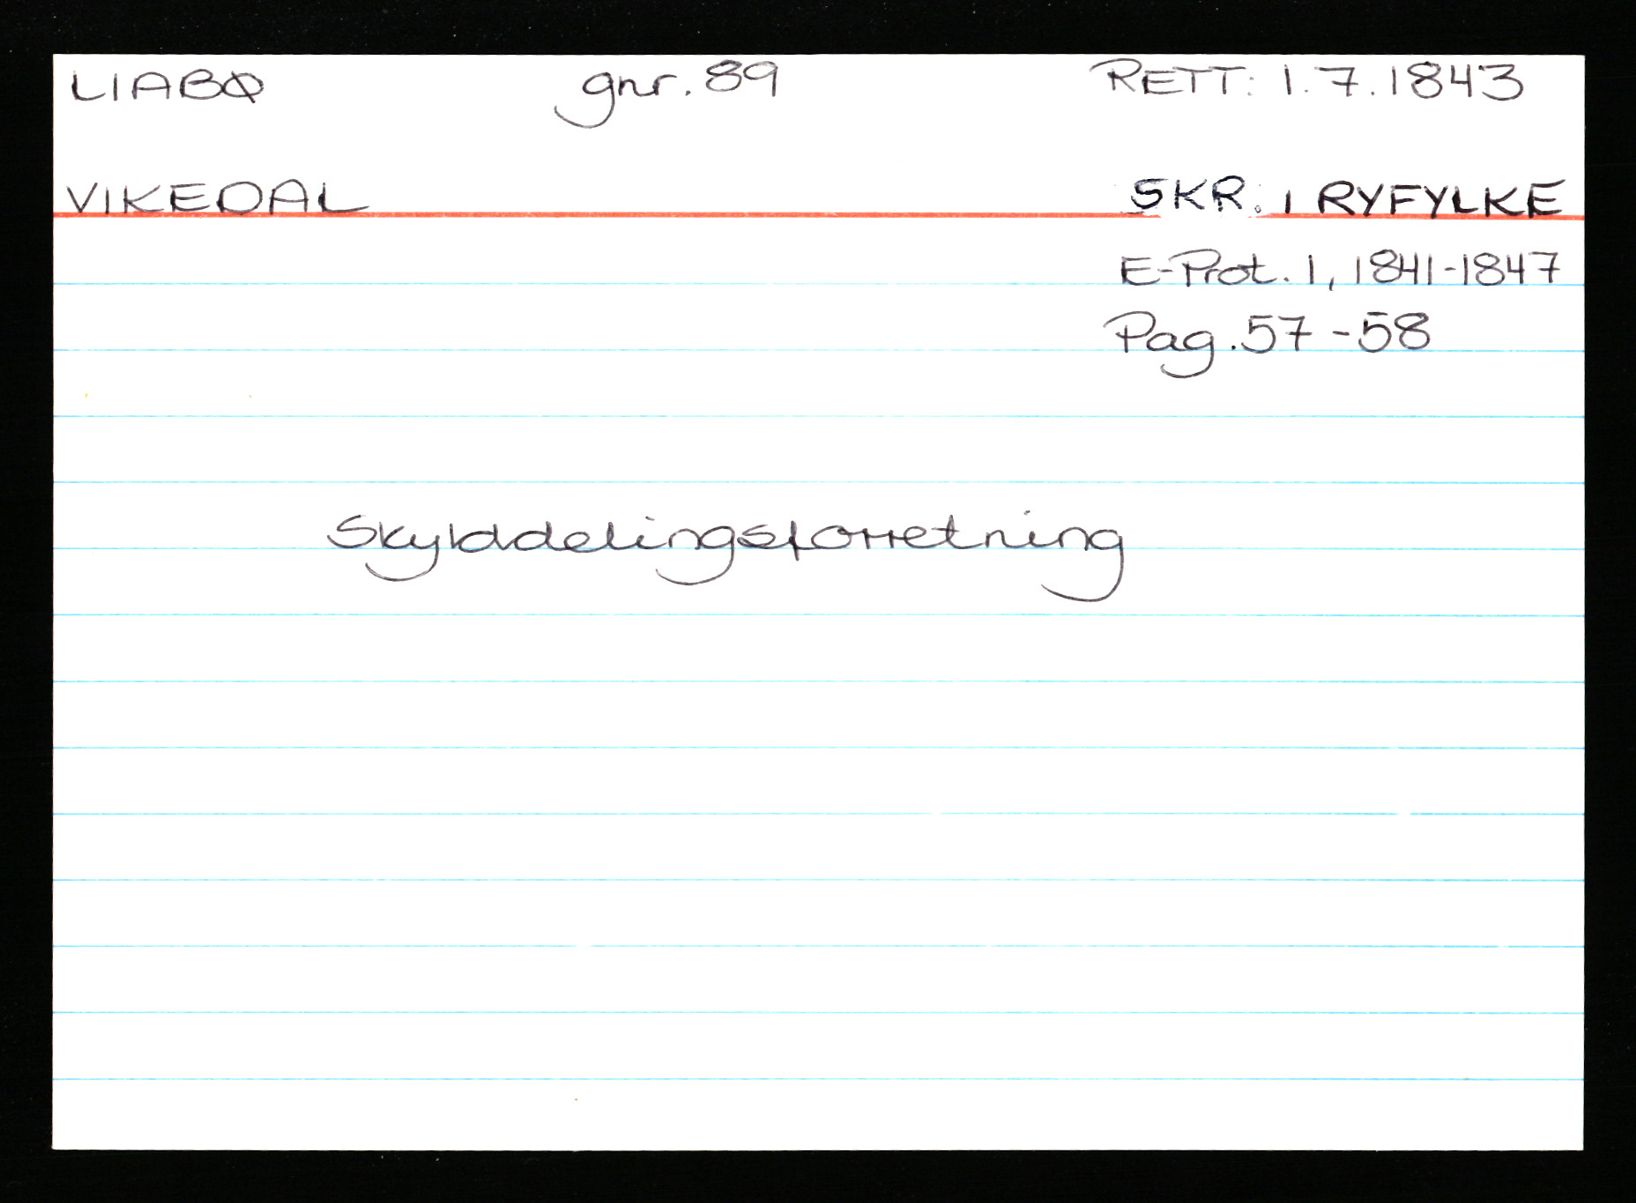 LIABØ gnr. 89 RETT: 1.7.1843
VIKEDAL SKR. I RYFYLKE
E-Prot. 1, 1841-1847
Pag. 57-58
Skylddelingsforretning